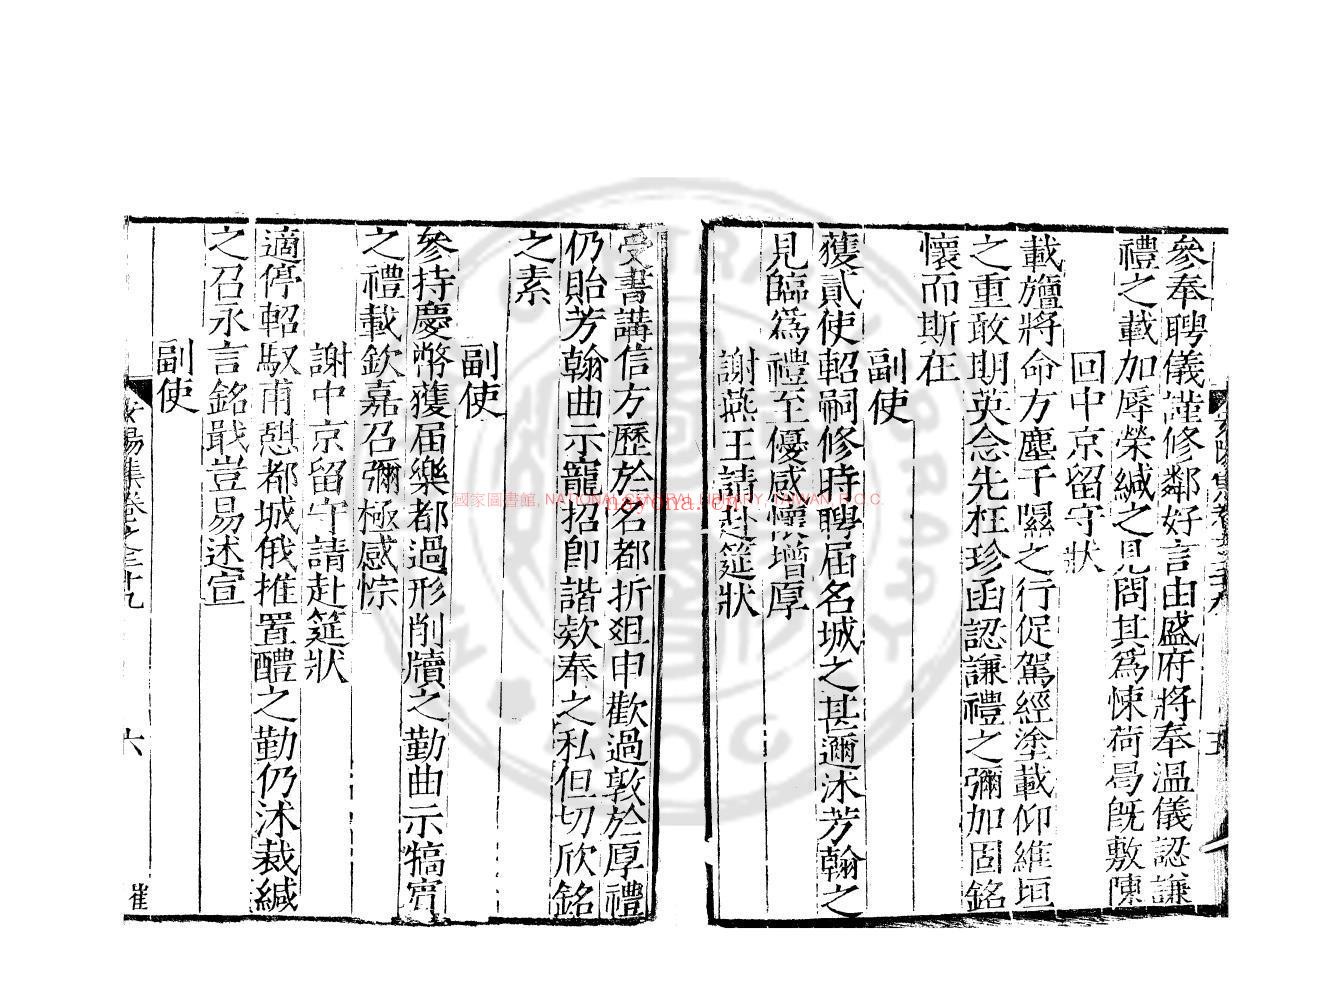 參奉聘儀謹修鄰好言由盛府將奉溫儀認謙
禮之載加辱榮緘之見問其爲悚荷曷旣敷陳
回中京留守狀
載旜將命方塵于隰之行促駕經塗載仰維垣
之重敢期英念先枉珍函認謙禮之彌加固銘
懷而斯在
副使
獲貳使軺嗣修時聘届名城之甚邇沐芳翰之
見臨爲禮至優感懷增厚
謝燕王請赴筵狀
受書講信方歷於名都折俎申歡過敦於厚禮
仍貽芳翰曲示寵招卽諧欵奉之私但切欣銘
之素
副使
參持慶幣獲届樂都過形削牘之勤曲示犒賔
之禮載欽嘉召彌極感悰
謝中京留守請赴筵狀
適停軺馭甫憩都城俄推置醴之勤仍沭裁緘
之召永言銘戢豈易述宣
副使
陽集卷之三十九
六
崔
國家圖書館, NATIONAL CENTRAL LIBRARY, TAIWAN, R.O.C.
nayona.cn